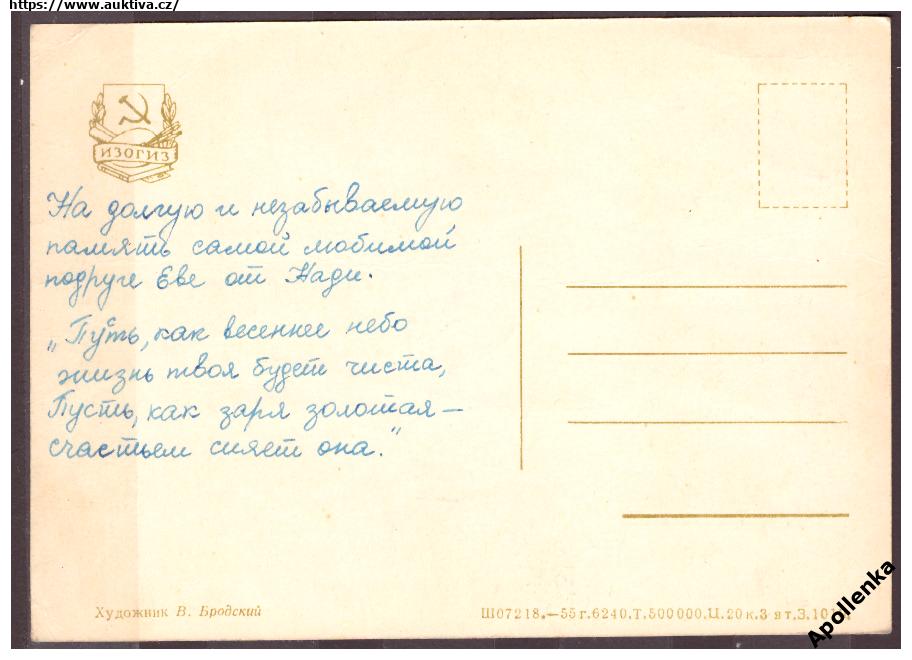 https://www.auktiva.cz/
ИЗОГИЗ
На долгую и незабываемую
память самой любимой
подруге Еве от Нади.
„Пусть, как весеннее небо
жизнь твоя будет чиста,
Пусть, как заря золотая—
счастьем сияет она."
Художник В. Бродский
Ш07218.—55г.6240.Т.500000.Ц.20к.3
Apollenka